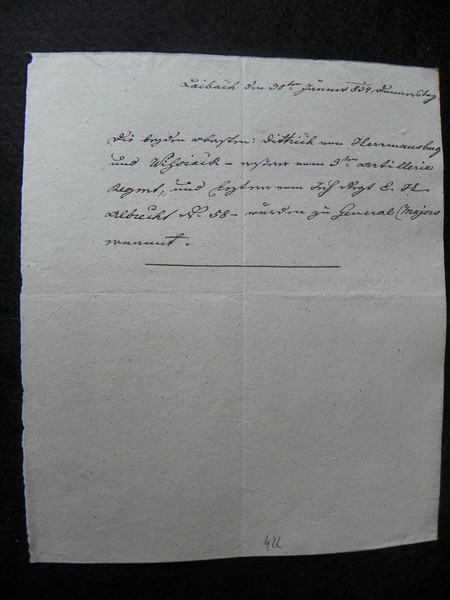 Laibach den 30ten Jänner 834, Donnerstag
Die beyden Obersten: Dittrich von Herrmannsburg
und – ersterer vom 5ten Artillerie
Regmt, und letzterer vom Inf Regt E. H.
Albrecht N. 58 – wurden zu General Majors
ernannt.
422